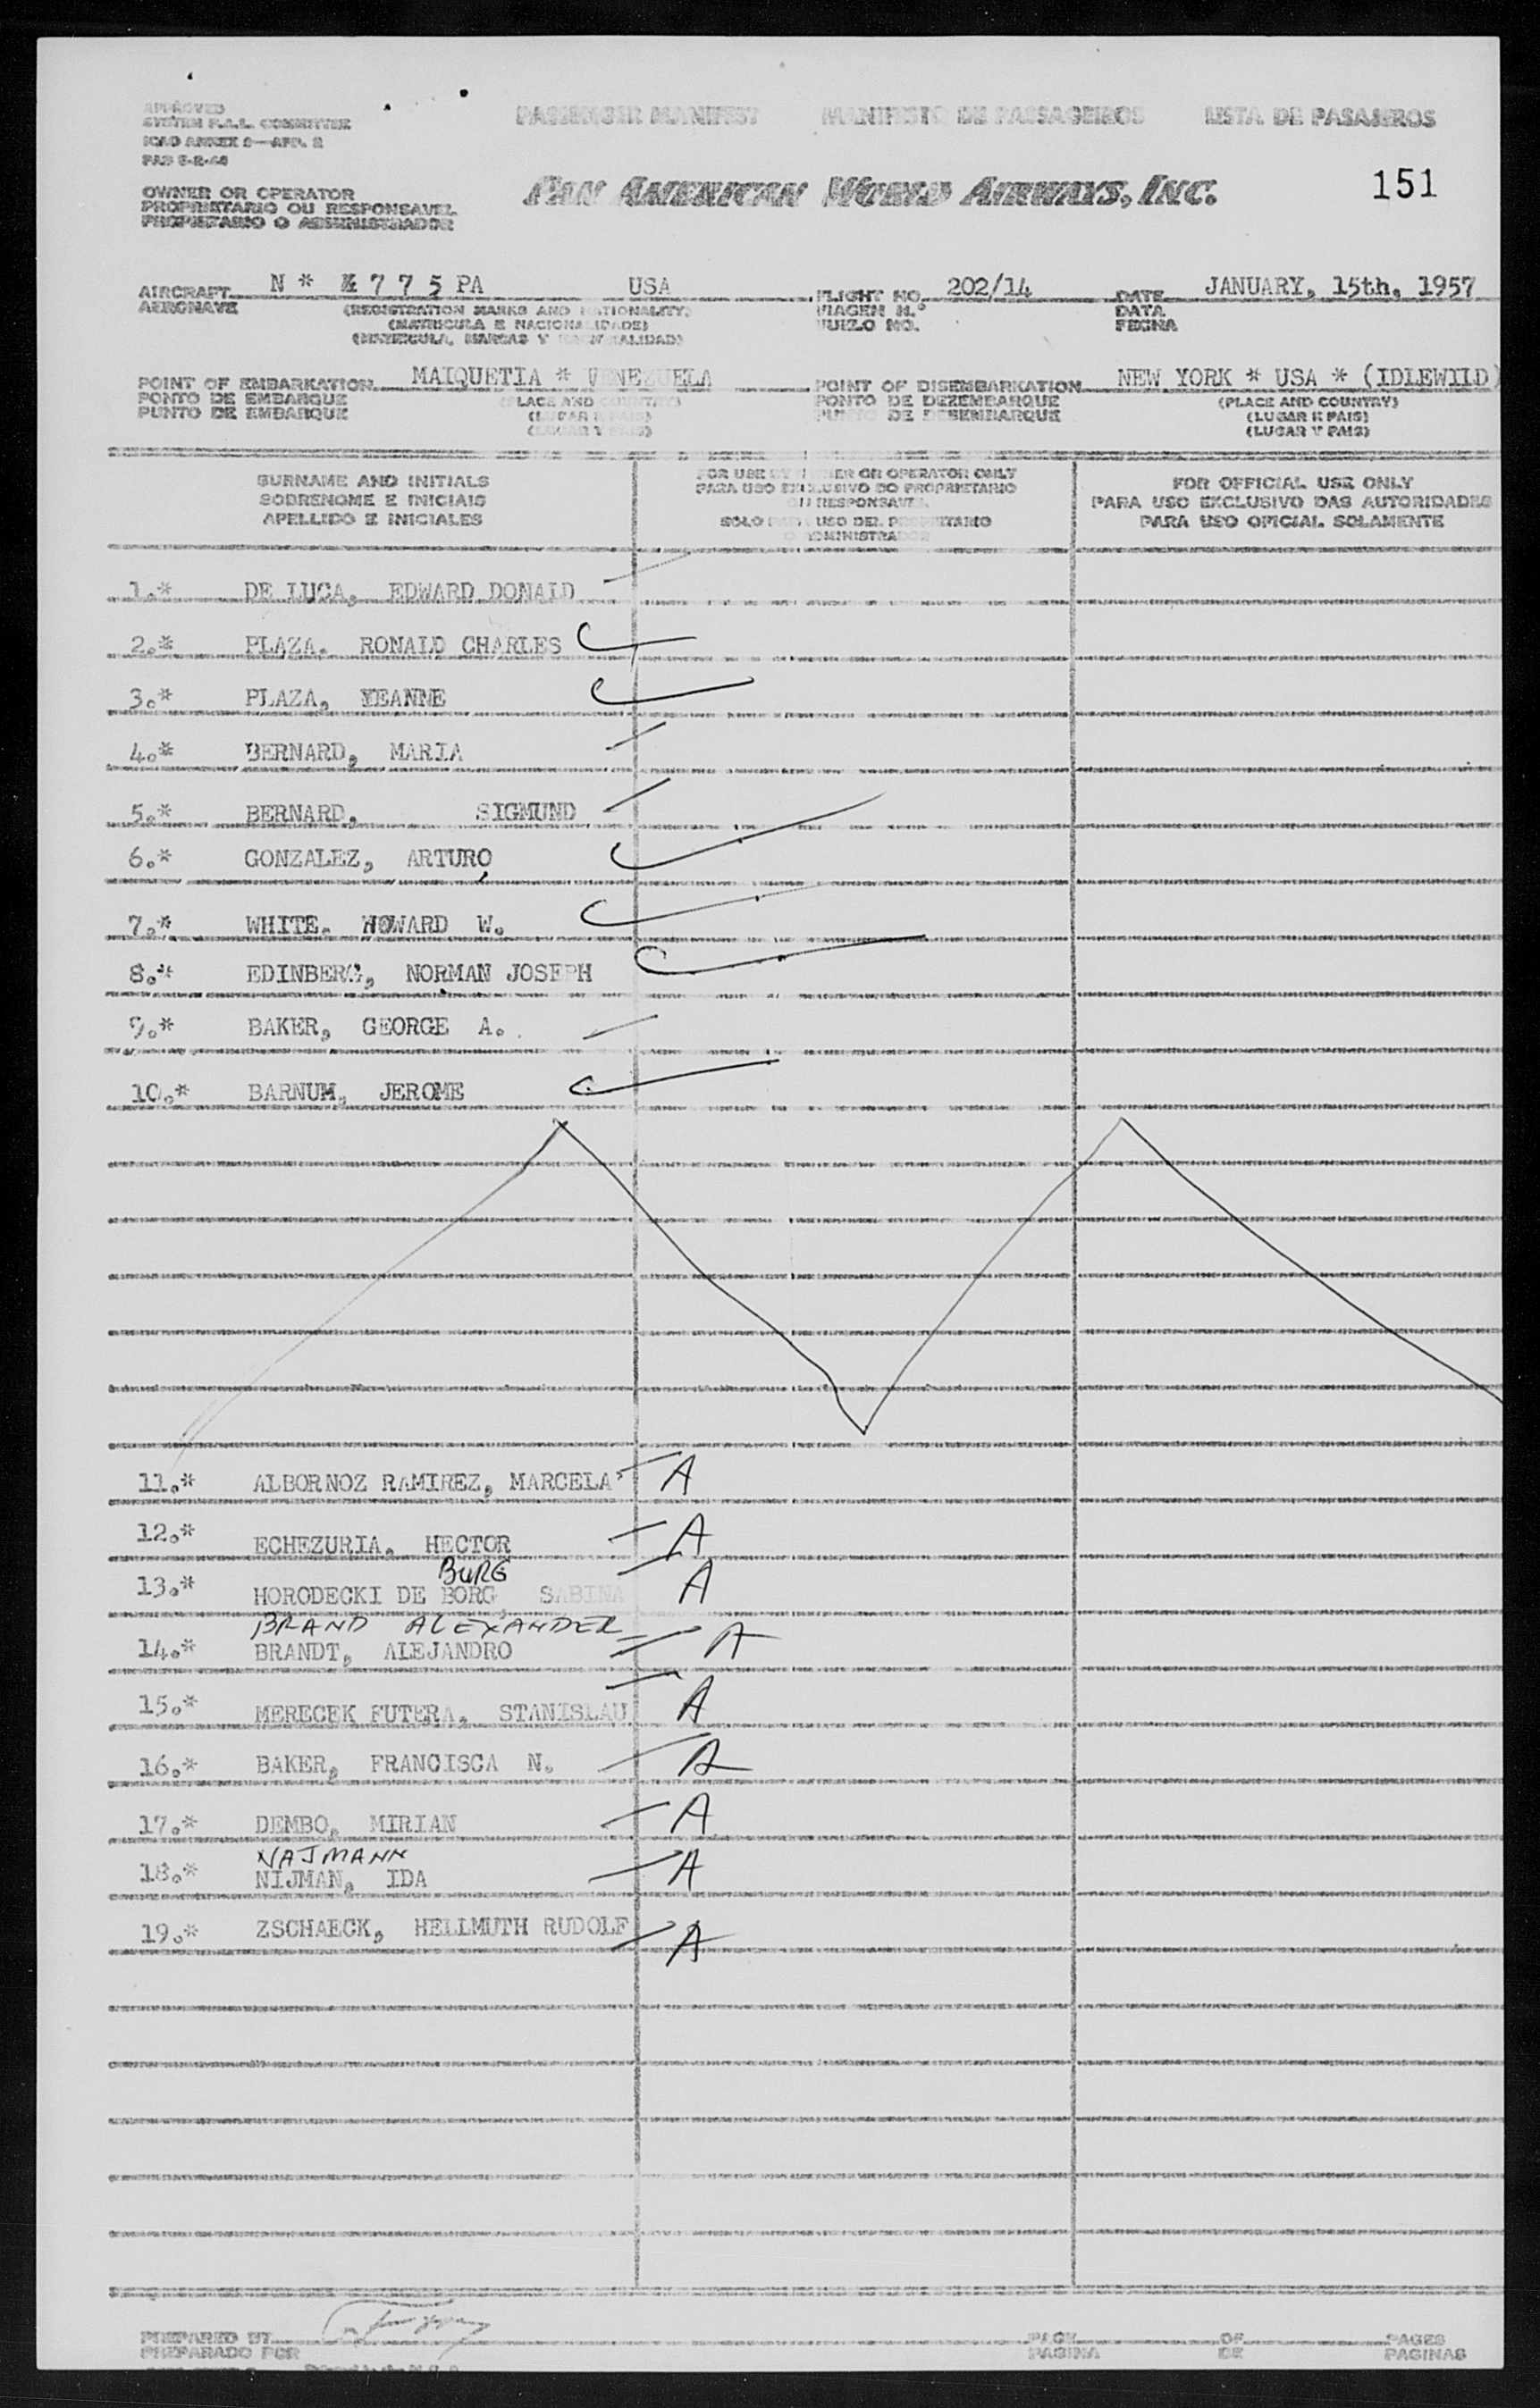 APPROVED
SYSTEM F.A.L. COMMITTEE
ICAO ANNEX 9—APP. 2
OWNER OR OPERATOR
PROPRIETARIO OU RESPONSAVEL
PROPIETARIO O ADMINISTRADOR
PASSENGER MANIFEST MANIFESTO DE PASSAGEIROS LISTA DE PASAJEROS
PAN AMERICAN WORLD AIRWAYS, INC. 151
AIRCRAFT N * 4 7 7 5 PA USA FLIGHT NO. 202/14 DATE JANUARY, 15th, 1957
AERONAVE (REGISTRATION MARKS AND NATIONALITY) VIAGEM N.º DATA
(MATRICULA E NACIONALIDADE) VUELO NO. FECHA
(MATRICULA, MARCAS Y NACIONALIDAD)
POINT OF EMBARKATION MAIQUETIA * VENEZUELA POINT OF DISEMBARKATION NEW YORK * USA * (IDLEWILD)
PONTO DE EMBARQUE (PLACE AND COUNTRY) PONTO DE DEZEMBARQUE (PLACE AND COUNTRY)
PUNTO DE EMBARQUE (LUGAR E PAIS) PUNTO DE DESEMBARQUE (LUGAR E PAIS)
(LUGAR Y PAIS) (LUGAR Y PAIS)
SURNAME AND INITIALS
SOBRENOME E INICIAIS
APELLIDO E INICIALES
FOR USE BY OWNER OR OPERATOR ONLY
PARA USO EXCLUSIVO DO PROPRIETARIO
OU RESPONSAVEL
SOLO PARA USO DEL PROPIETARIO
O ADMINISTRADOR
FOR OFFICIAL USE ONLY
PARA USO EXCLUSIVO DAS AUTORIDADES
PARA USO OFICIAL SOLAMENTE
1.* DE LUCA, EDWARD DONALD
2.* PLAZA. RONALD CHARLES
3.* PLAZA, YEANNE
4.* BERNARD, MARIA
5.* BERNARD, SIGMUND
6.* GONZALEZ, ARTURO
7.* WHITE, HOWARD W.
8.* EDINBERG, NORMAN JOSEPH
9.* BAKER, GEORGE A.
10.* BARNUM, JEROME
11.* ALBORNOZ RAMIREZ, MARCELA A
12.* ECHEZURIA, HECTOR A
BURG
13.* HORODECKI DE BORG, SABINA A
BRAND ALEXANDER
14.* BRANDT, ALEJANDRO A
15.* MERECEK FUTERA, STANISLAU A
16.* BAKER, FRANCISCA N. A
17.* DEMBO, MIRIAN A
NAJMANN
18.* NIJMAN, IDA A
19.* ZSCHAECK, HELLMUTH RUDOLF A
PREPARED BY PAGE OF PAGES
PREPARADO POR PAGINA DE PAGINAS